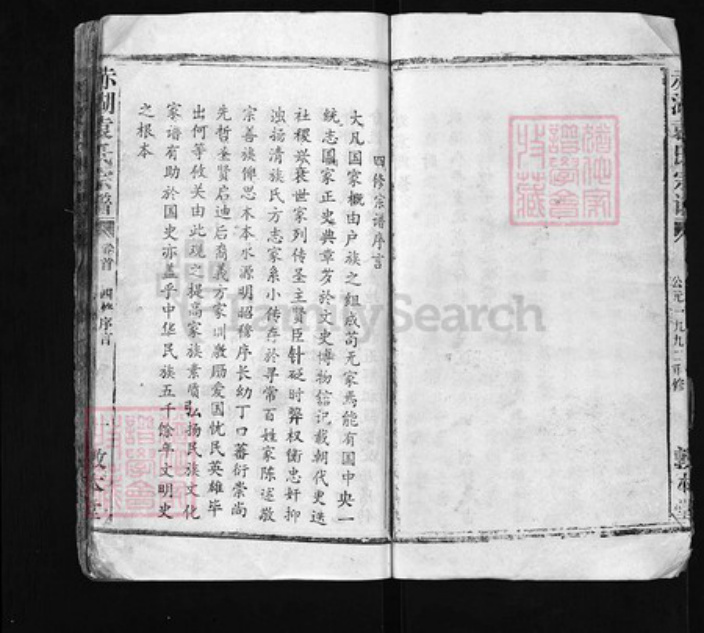 四修宗谱序言
大凡国家概由户族之组成苟无家焉能有国中央一
统志国家正史典章岁於文史博物信记载朝代更迭
社稷兴衰世家列传圣主贤臣针砭时弊权衡忠奸抑
浊扬清族氏方志家系小传存於寻常百姓家陈述敬
宗善族俾思木本水源明昭穆序长幼丁口蕃衍崇尚
先哲圣贤启迪后裔义方家训教励爱国忧民英雄毕
出何等攸关由此观之提高家族素质弘扬民族文化
家谱有助於国史亦盖乎中华民族五千馀年文明史
之根本
赤湖袁氏宗谱
卷首
四修序言
一
敦本堂
赤湖袁氏宗谱
公元一九九二年修
敦本堂
FamilySearch